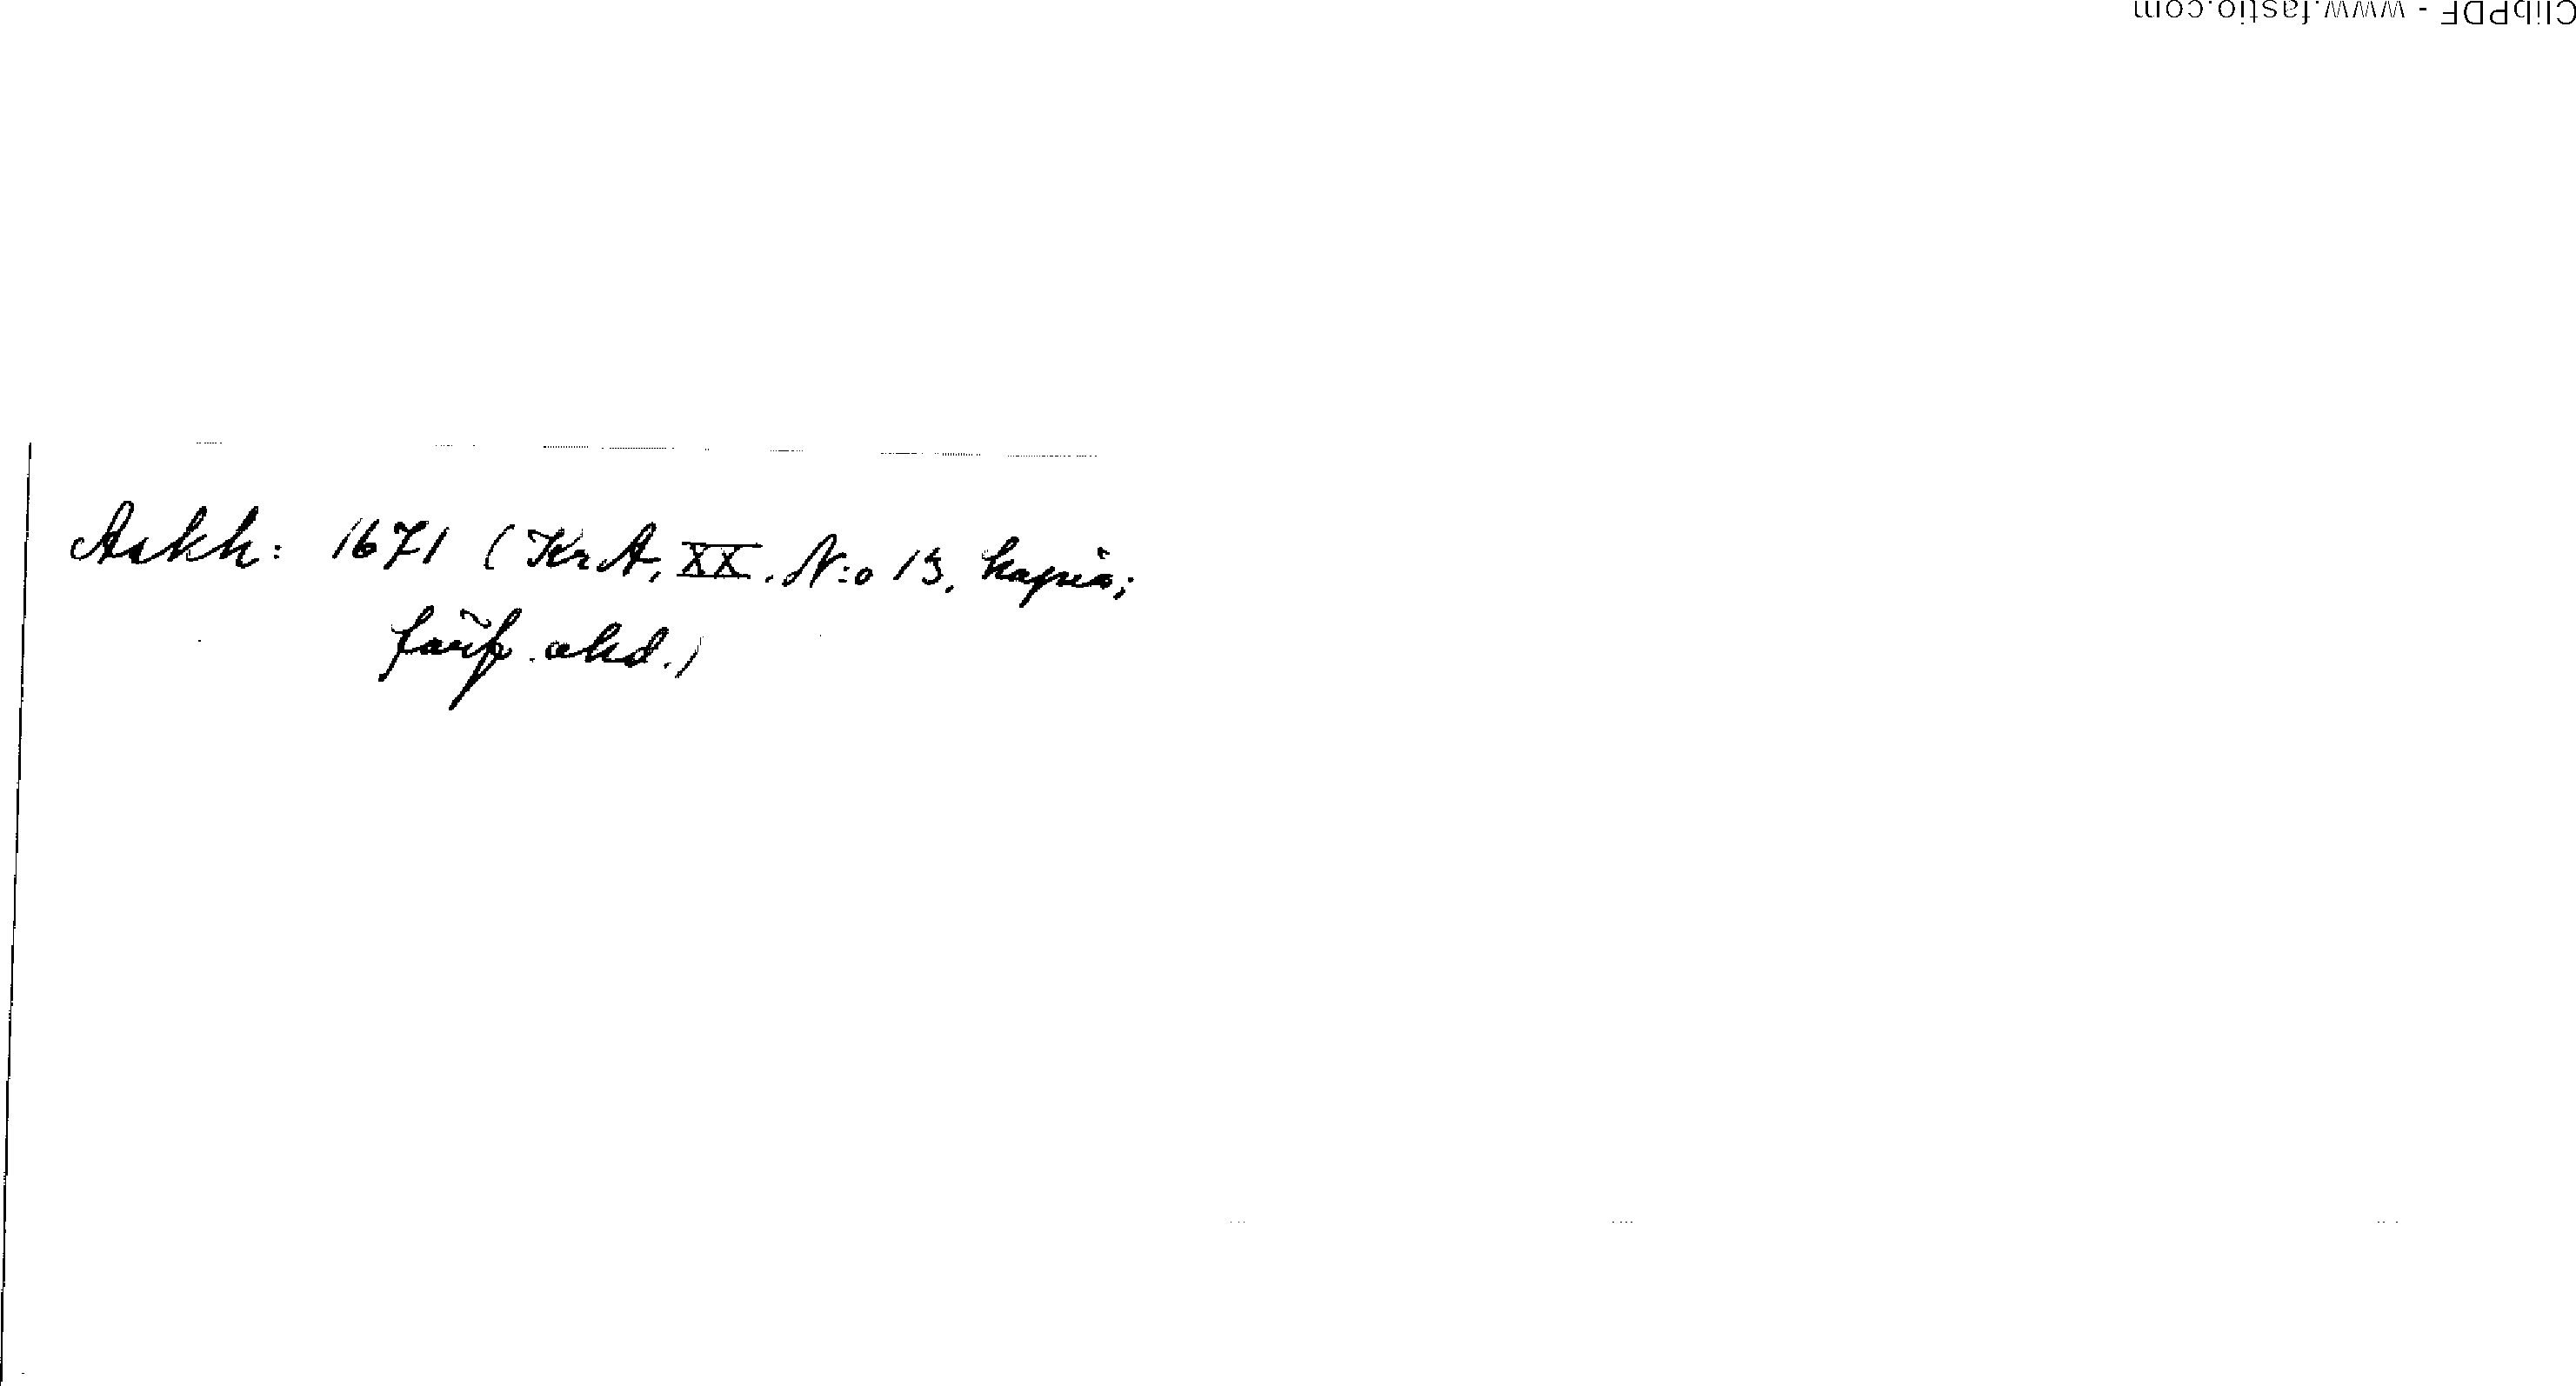 ClibPDF - www.fastio.com
Askh: 1671 (KrA, XX. N:o 13. kopia;
färg. ahd.)